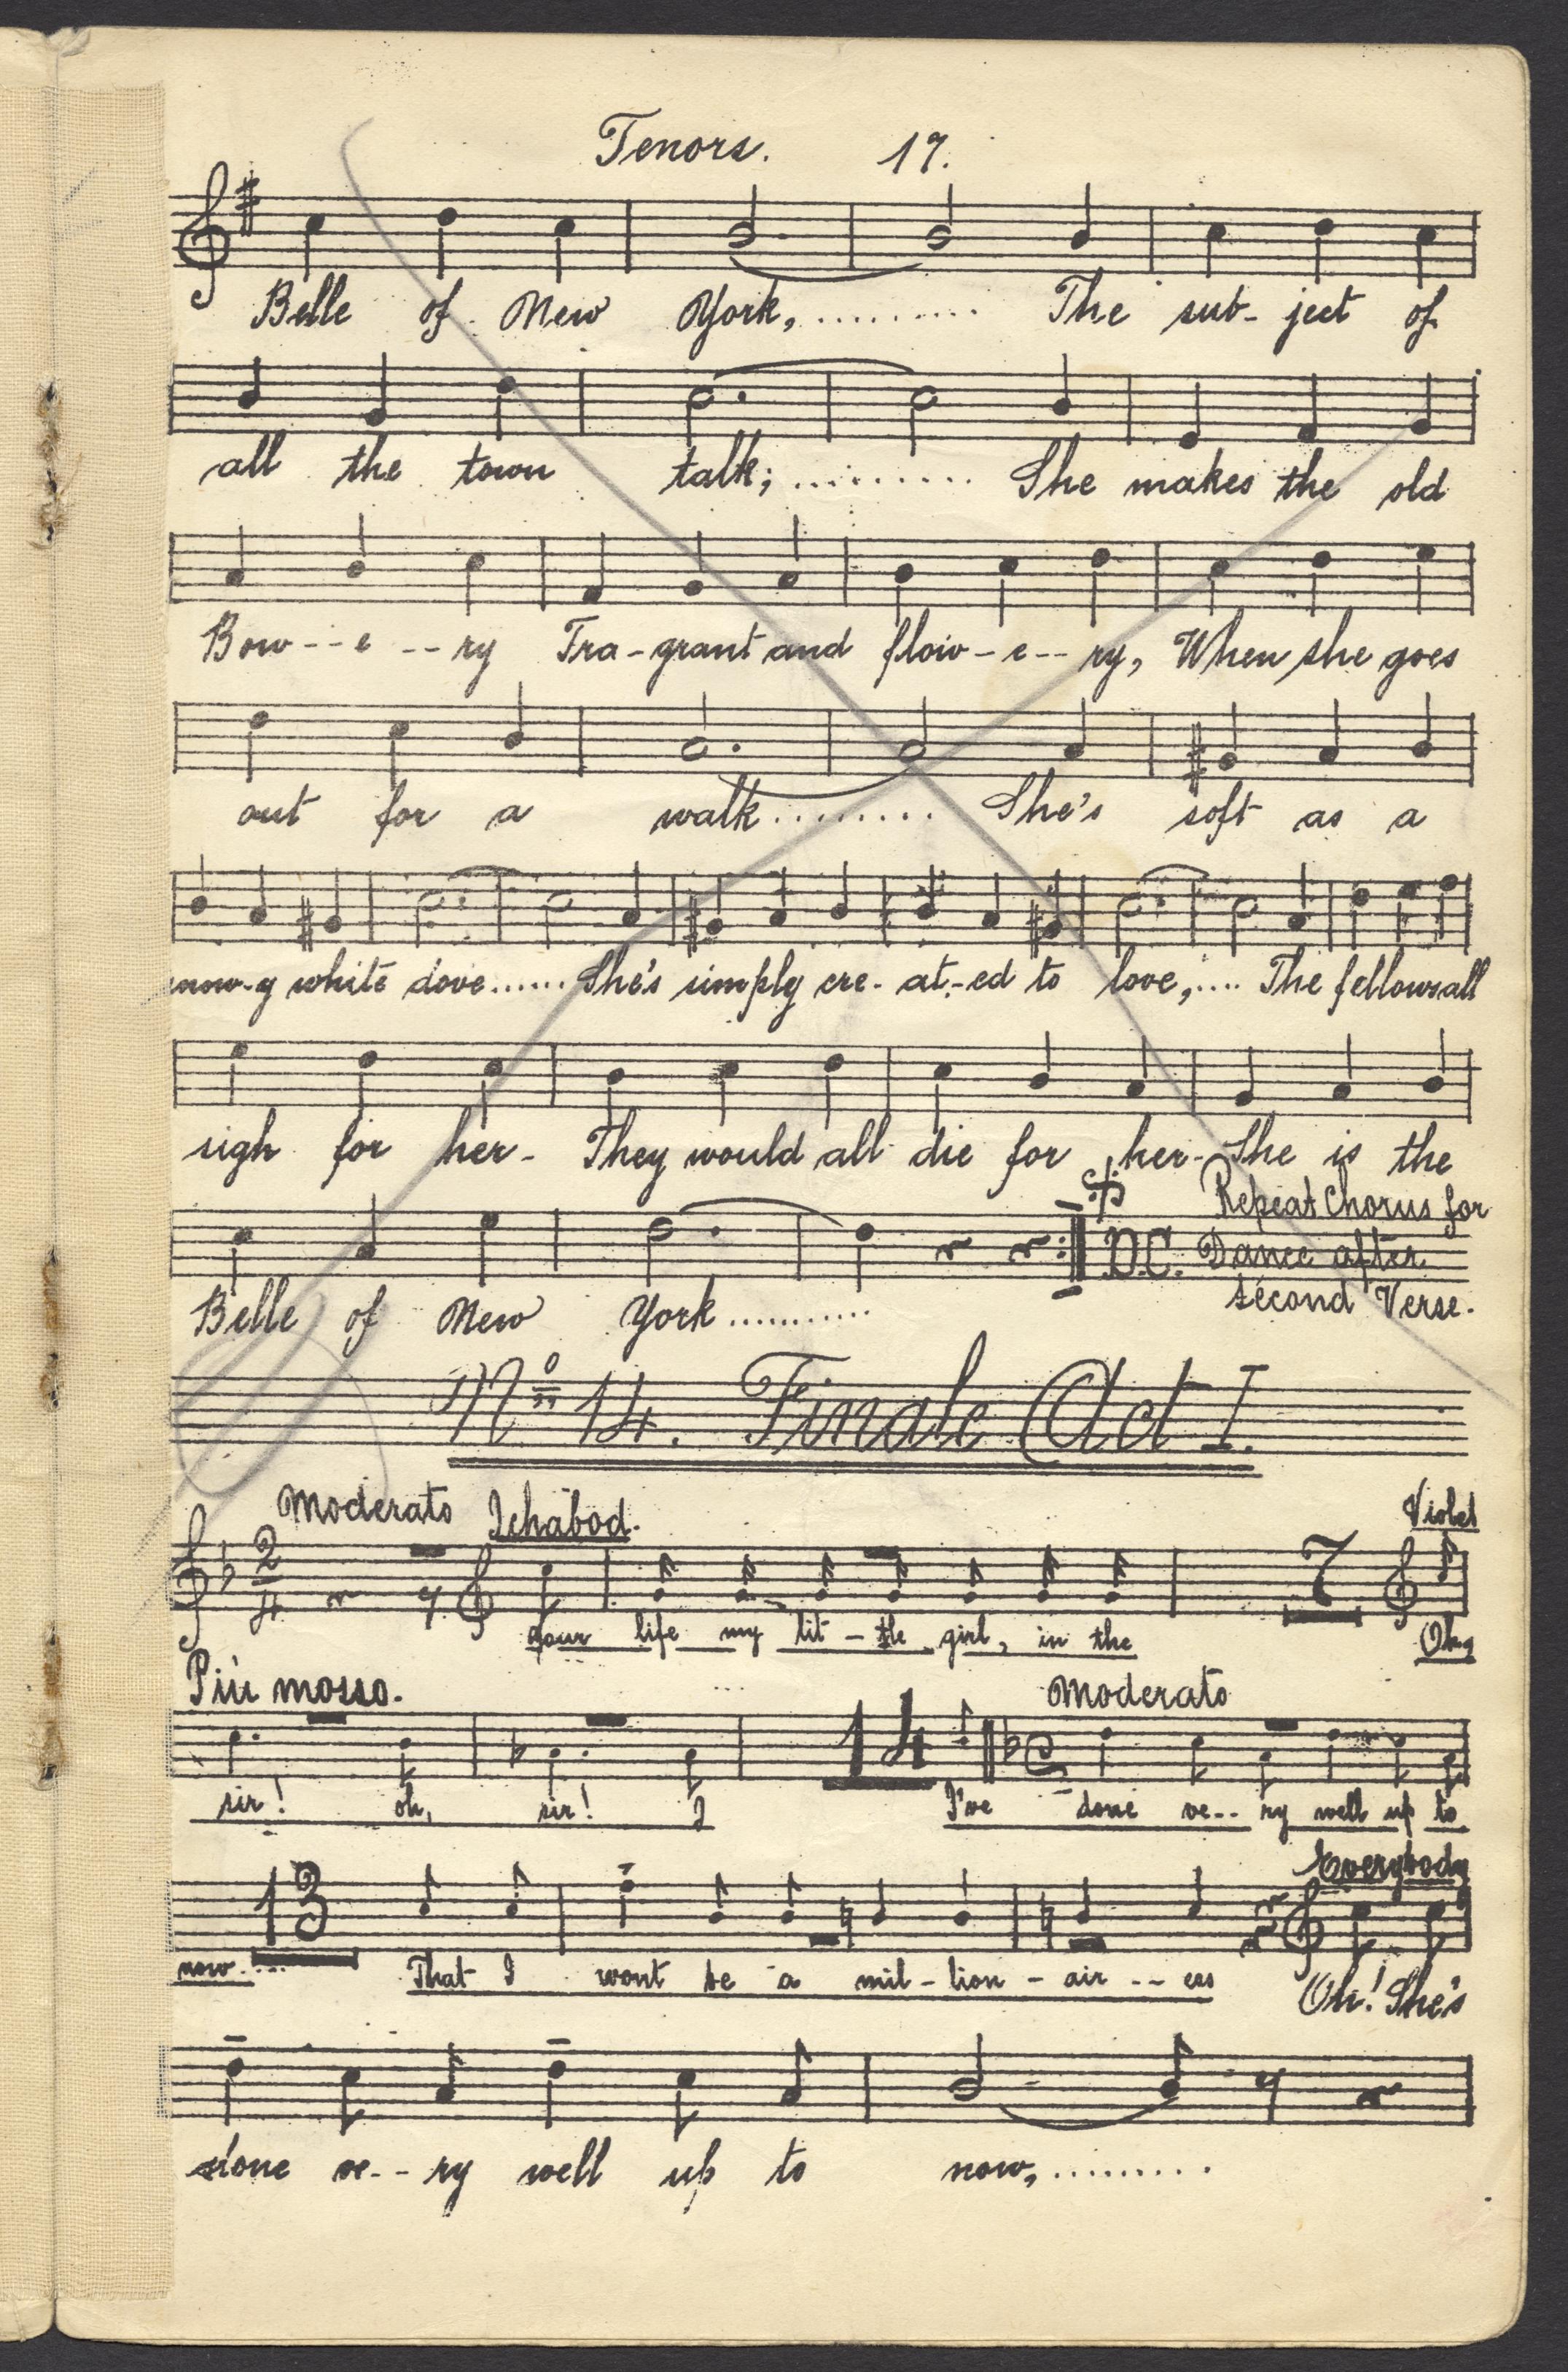 Tenors. 17.
Belle of New York, .......... The sub- ject of
all the town talk; .......... She makes the old
Bow - - e - - ry Fra - grant and flow - e - - ry, When she goes
out for a walk ......... She's soft as a
snow-y white dove ...... She's simply cre - at - ed to love, .... The fellows all
sigh for her - They would all die for her - She is the
D.C. Repeat Chorus for
Dance after
second Verse.
Belle of New York ...........
No 14. Finale Act I.
Moderato Ichabod. Violet
2
4 7
Your life my lit - tle girl, in the Oh,
Più mosso. Moderato
14 C
sir! oh, sir! I I've done ve - - ry well up to
Everybody
13
now .... That I wont be a mil - lion - air - - ess Oh! She's
done ve - - ry well up to now, .........